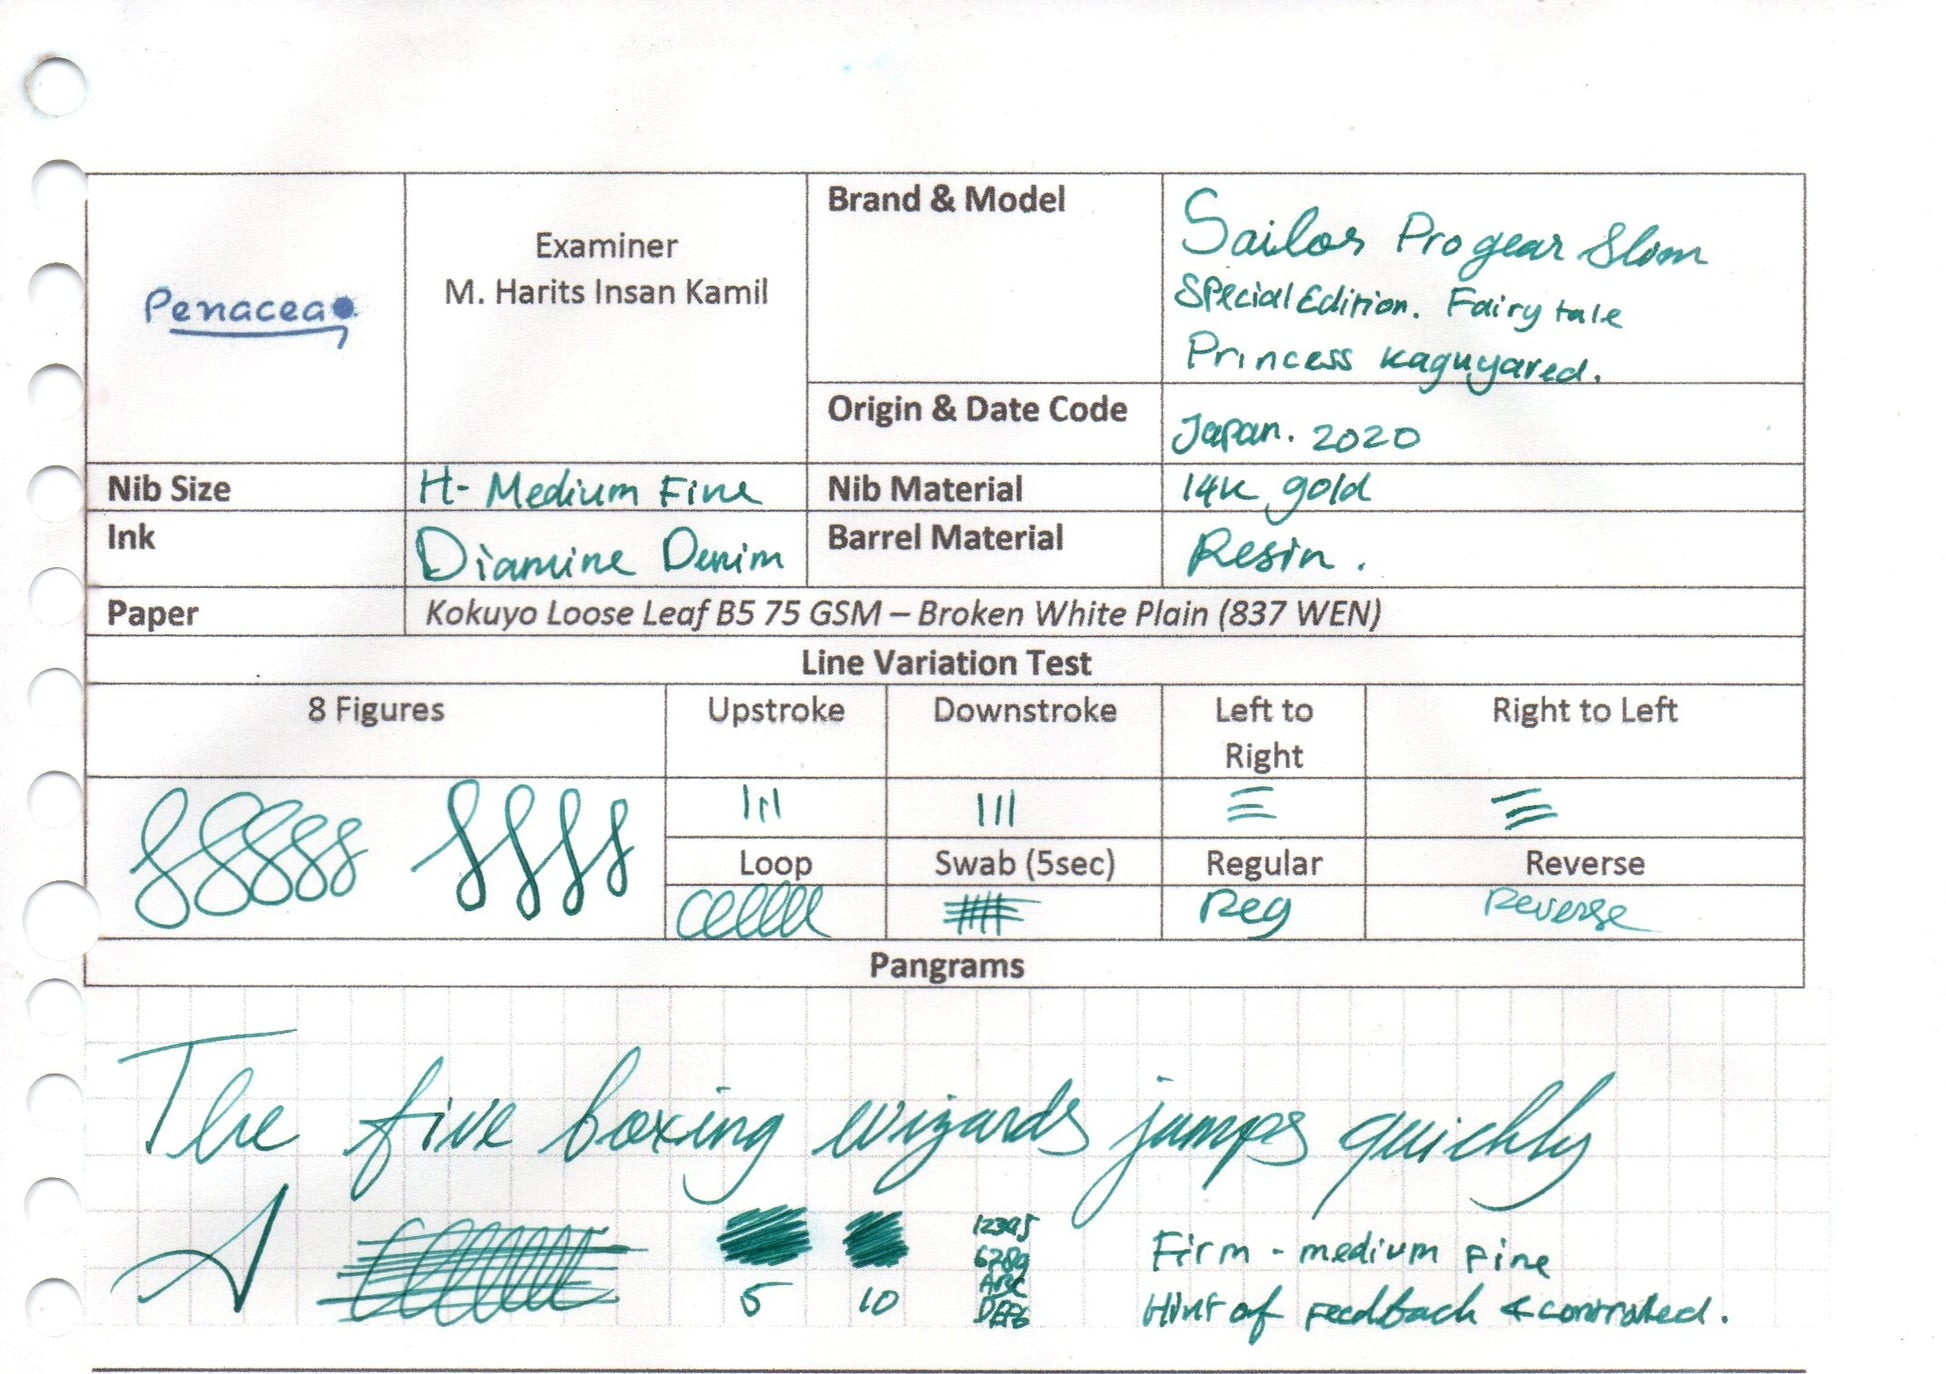 Penacea
Examiner
M. Harits Insan Kamil
Brand & Model
Sailor Pro gear Slim
Special Edition. Fairy tale
Princess Kaguyared.
Origin & Date Code
Japan. 2020
Nib Size
H- Medium Fine
Nib Material
14K gold
Ink
Diamine Denim
Barrel Material
Resin.
Paper
Kokuyo Loose Leaf B5 75 GSM – Broken White Plain (837 WEN)
Line Variation Test
8 Figures
Upstroke
Downstroke
Left to
Right
Right to Left
Loop
Swab (5sec)
Regular
Reverse
Reg
Reverse
Pangrams
The five boxing wizards jumps quickly
5
10
12345
6789
ABC
DEFG
Firm - medium Fine
Hint of Feedback & controlled.